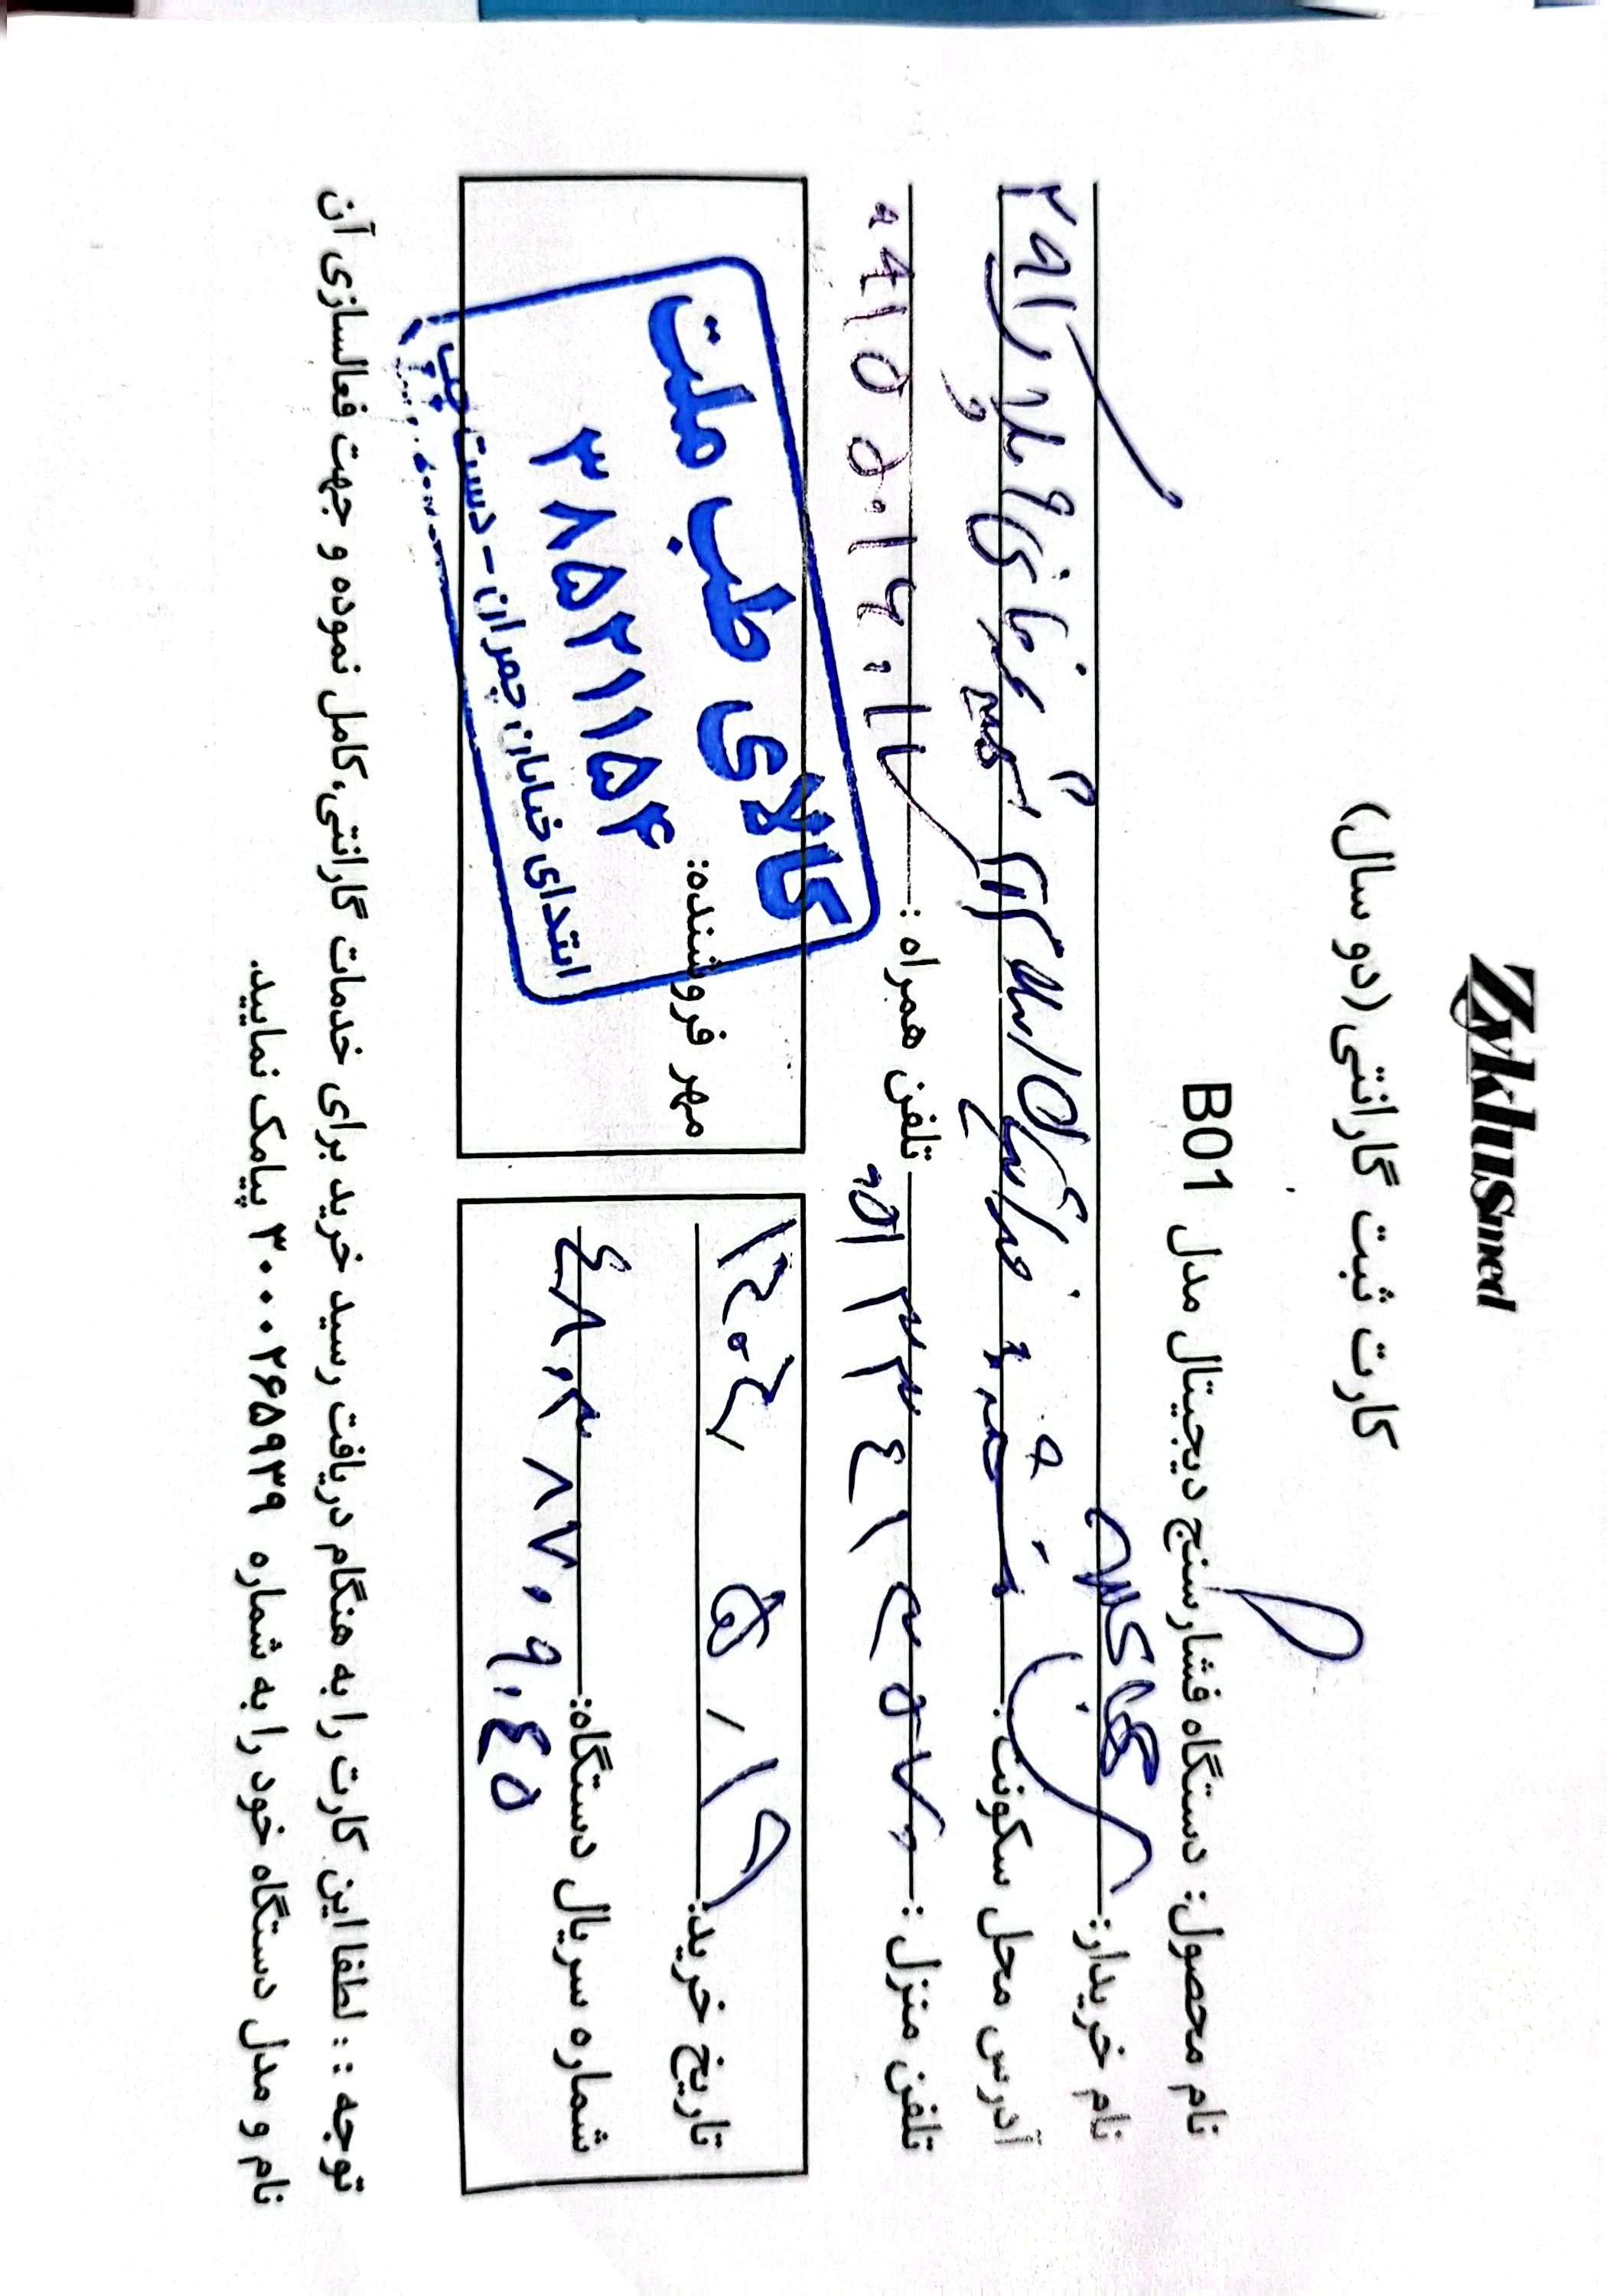 Zyklusmed
کارت ثبت گارانتی(دو سال)
نام محصول: دستگاه فشارسنج دیجیتال مدل B01
نام خریدار:
آدرس محل سکونت: مشهد پلاک ۲۹۱
تلفن منزل: تلفن همراه: ۰۹۱۵۵۰۱۲۰۱۷
تاریخ خرید: ۱۴۰۴/۵/۱۶
شماره سریال دستگاه: ۴۸۰۳۸۷۰۹۰۴۵
مهر فروشنده:
کالای طب ملت
۳۸۵۲۱۱۵۴
ابتدای خیابان چمران - دست چپ
توجه :: لطفا این کارت را به هنگام دریافت رسید خرید برای خدمات گارانتی،کامل نموده و جهت فعالسازی آن
نام و مدل دستگاه خود را به شماره ۳۰۰۰۲۶۵۹۳۹ پیامک نمایید.